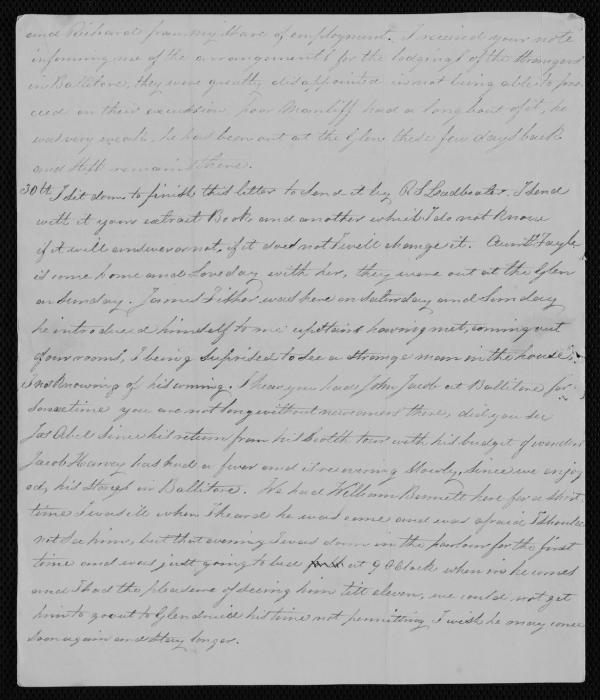 and Richard from my share of employment. I received your note
informing me of the arrangements for the lodgings of the strangers
in Ballitore, they were greatly disappointed in not being able to pro-
ceed on their excursion, poor had a long bout of it, he
was very weak, he has been out at the Glen these few days back
and still remains there.
30th I sit down to finish this letter to send it by R S Leadbeater. I send
with it your extract Book and another which I do not know
if it will answer or not, if it does not I will change it. Aunt Fayle
is come home and Loveday with her, they were out at the Glen
on Sunday. James Fisher was here on Saturday and Sunday
he introduced himself to me upstairs having met, coming out
of our rooms, I being suprised to see a strange man in the house,
I not knowing of his coming. I hear you have John Jacob at Ballitore for
sometime you are not long without newcomers there, did you see
Jas Abel since his return from his Scotch tour with his budget of wonders
Jacob Harvey has had a fever and is recovering slowly, since we enjoy
ed, his stay in Ballitore. We had William Bennett here for a short
time I was ill when I heard he was come and was afraid I should
not see him, but that evening I was down in the parlour for the first
time and was just going to bed at 9 OClock when in he comes
and I had the pleasure of seeing him till eleven, we could not get
him to go out to Glendruid his time not permitting I wish he may come
soon again and stay longer.